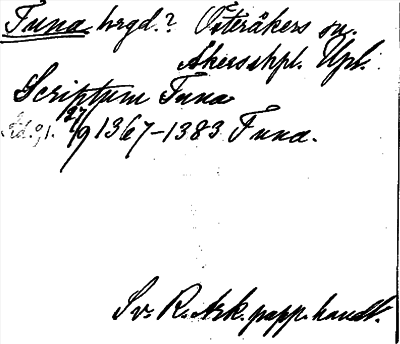 Tuna hrgd.? Österåkers sn.
Åkers skpl. Upl.
Scriptum Tuna
27/9 1367-1383 Tuna.
Sv. R. Ark. papp. handl.